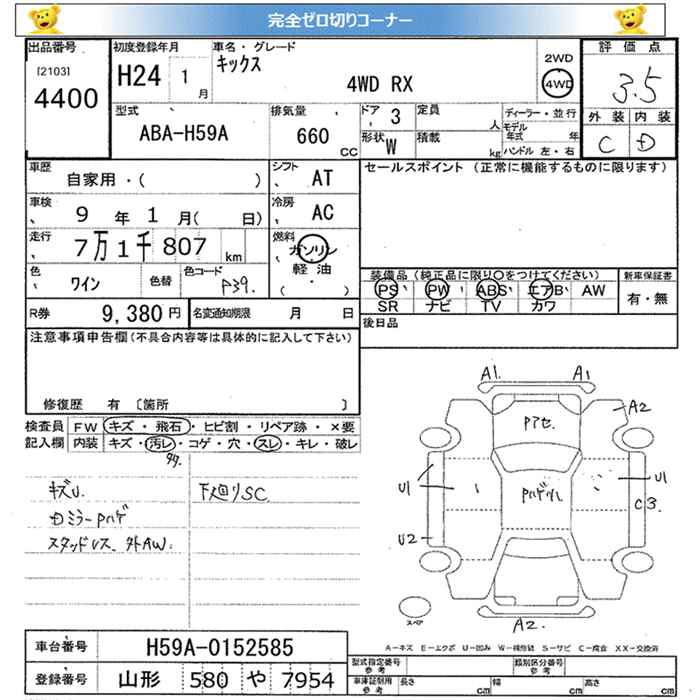 完全ゼロ切りコーナー
出品番号
[2103]
4400
初度登録年月
H24 1 月
車名・グレード
キックス
4WD RX
2WD
4WD
評価点
3.5
外装 内装
C D
型式
ABA-H59A
排気量
660 CC
ドア 3
形状 W
定員 人
積載 kg
ディーラー・並行
モデル年式 年
ハンドル 左・右
車歴
自家用・( )
シフト AT
セールスポイント (正常に機能するものに限ります)
車検 9 年 1 月( 日)
冷房 AC
走行 7万1千807 km
燃料 ガソリン
軽油
( ・ )
色 ワイン
色替
色コード P39.
装備品 (純正品に限り○をつけてください)
PS PW ABS エアB AW
SR ナビ TV カワ
新車保証書
有・無
R券 9,380 円
名変通知期限 月 日
後日品
注意事項申告欄(不具合内容等は具体的に記入して下さい)
修復歴 有 〔箇所 〕
検査員記入欄
FW キズ・飛石・ヒビ割・リペア跡・×要
内装 キズ・汚レ・コゲ・穴・スレ・キレ・破レ
キズU.
Dミラーpハゲ
スタッドレス、外AW.
下廻りSC
A1. A1
A2
Pアセ.
U1 U1
Pハゲ
C3.
U2
A2.
スペア
A-キズ E-エクボ U-凹み W-補修跡 S-サビ C-腐食 XX-交換済
車台番号 H59A-0152585
登録番号 山形 580 や 7954
型式指定番号 参考
類別区分番号 参考
車庫証明用 参考
長さ cm 幅 cm 高さ cm